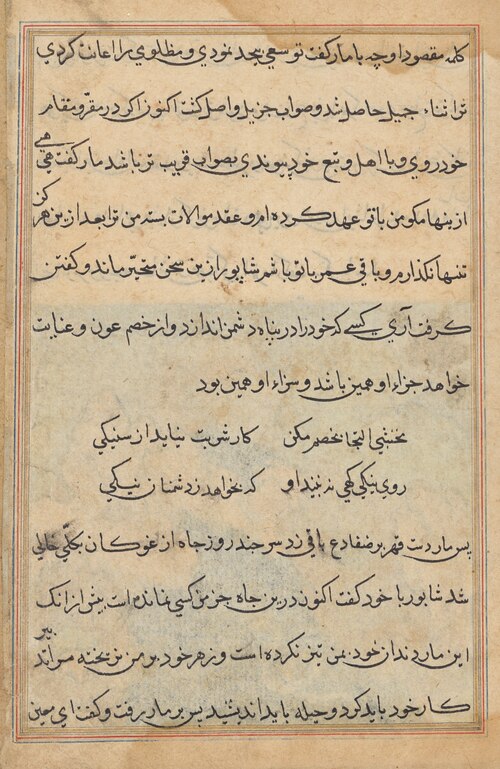 کله مقصود او چه با مار کفت تو سعی بجد نمودی و مظلومی را اعانت کردی
ترا ثناء جمیل حاصل شد و صواب جزیل واصل کشت اکنون اکر در مقر و مقام
خود روی و با اهل و تبع خود پیوندی بصواب قریب تر باشد مار کفت هی هی
ازینها مکو من با تو عهد کرده ام و عقد موالات بسته من ترا بعد ازین هرکز
تنها نکذارم و باقی عمر با تو باشم شاپور ازین سخن متحیر ماند و کفتن
کرفت آری کسی که خود را در پناه دشمن اندازد و از خصم عون و عنایت
خواهد جزاء او همین باشد و سزاء او همین بود
نخشبی التجا بخصم مکن کار شربت نیاید از سنیکی
روی نیکی کهی نه بیند او که بخواهد ز دشمنان نیکی
پس مار دست قهر بر ضفادع باقی زد سر چند روز جاه از غوکان بکلی خالی
شد شاپور با خود کفت اکنون درین جاه جز من کسی نمانده است پیش از انک
این مار دندان خود بمن تیز نکرده است و زهر خود بر من نریخته سر اند
کار خود باید کرد و حیله باید اندیشید پس بر مار رفت و کفت ای معین